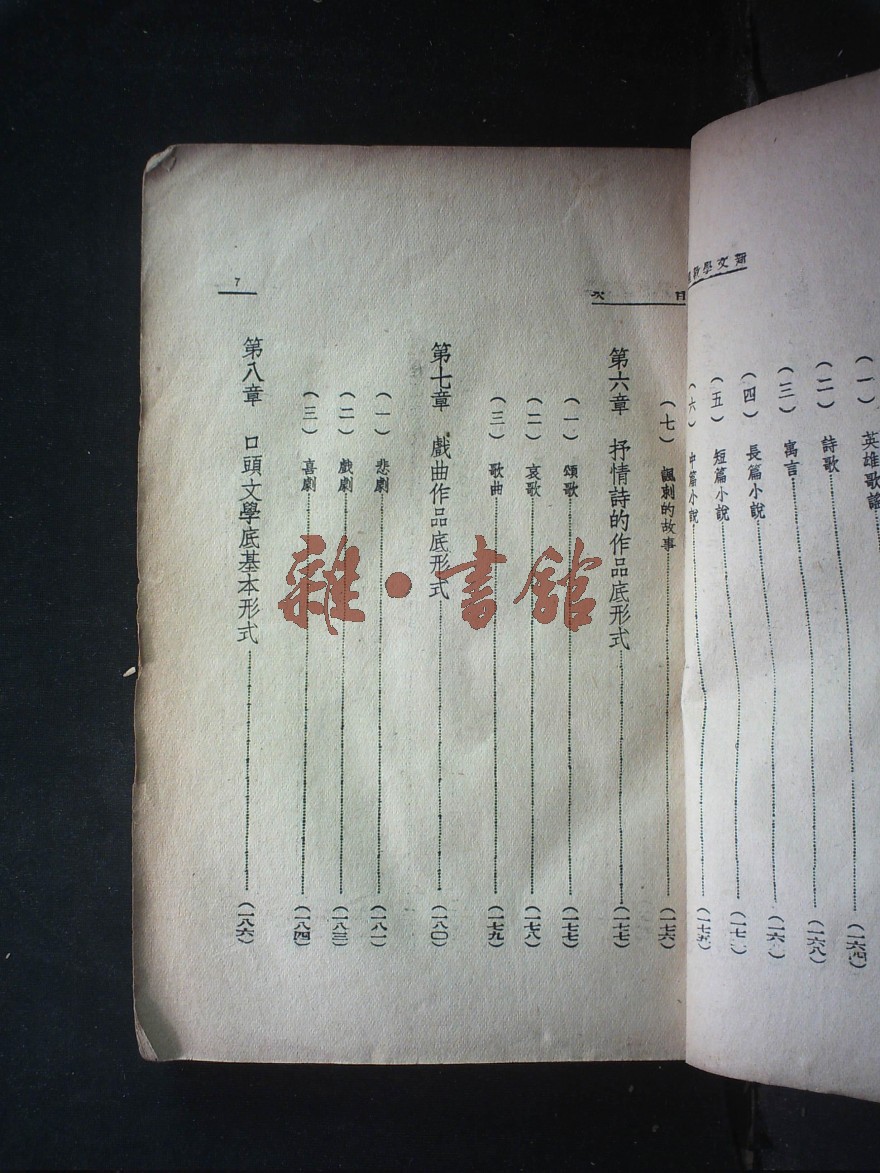 (一) 英雄歌謠 (一六四)
(二) 詩歌 (一六八)
(三) 寓言
(四) 長篇小說
(五) 短篇小說
(六) 中篇小說
目次
(七) 諷刺的故事 (一七六)
第六章 抒情詩的作品底形式 (一七七)
(一) 頌歌 (一七七)
(二) 哀歌 (一七八)
(三) 歌曲 (一七九)
第七章 戲曲作品底形式 (一八〇)
(一) 悲劇 (一八一)
(二) 戲劇 (一八三)
(三) 喜劇 (一八四)
第八章 口頭文學底基本形式 (一八六)
7
雜·書舘